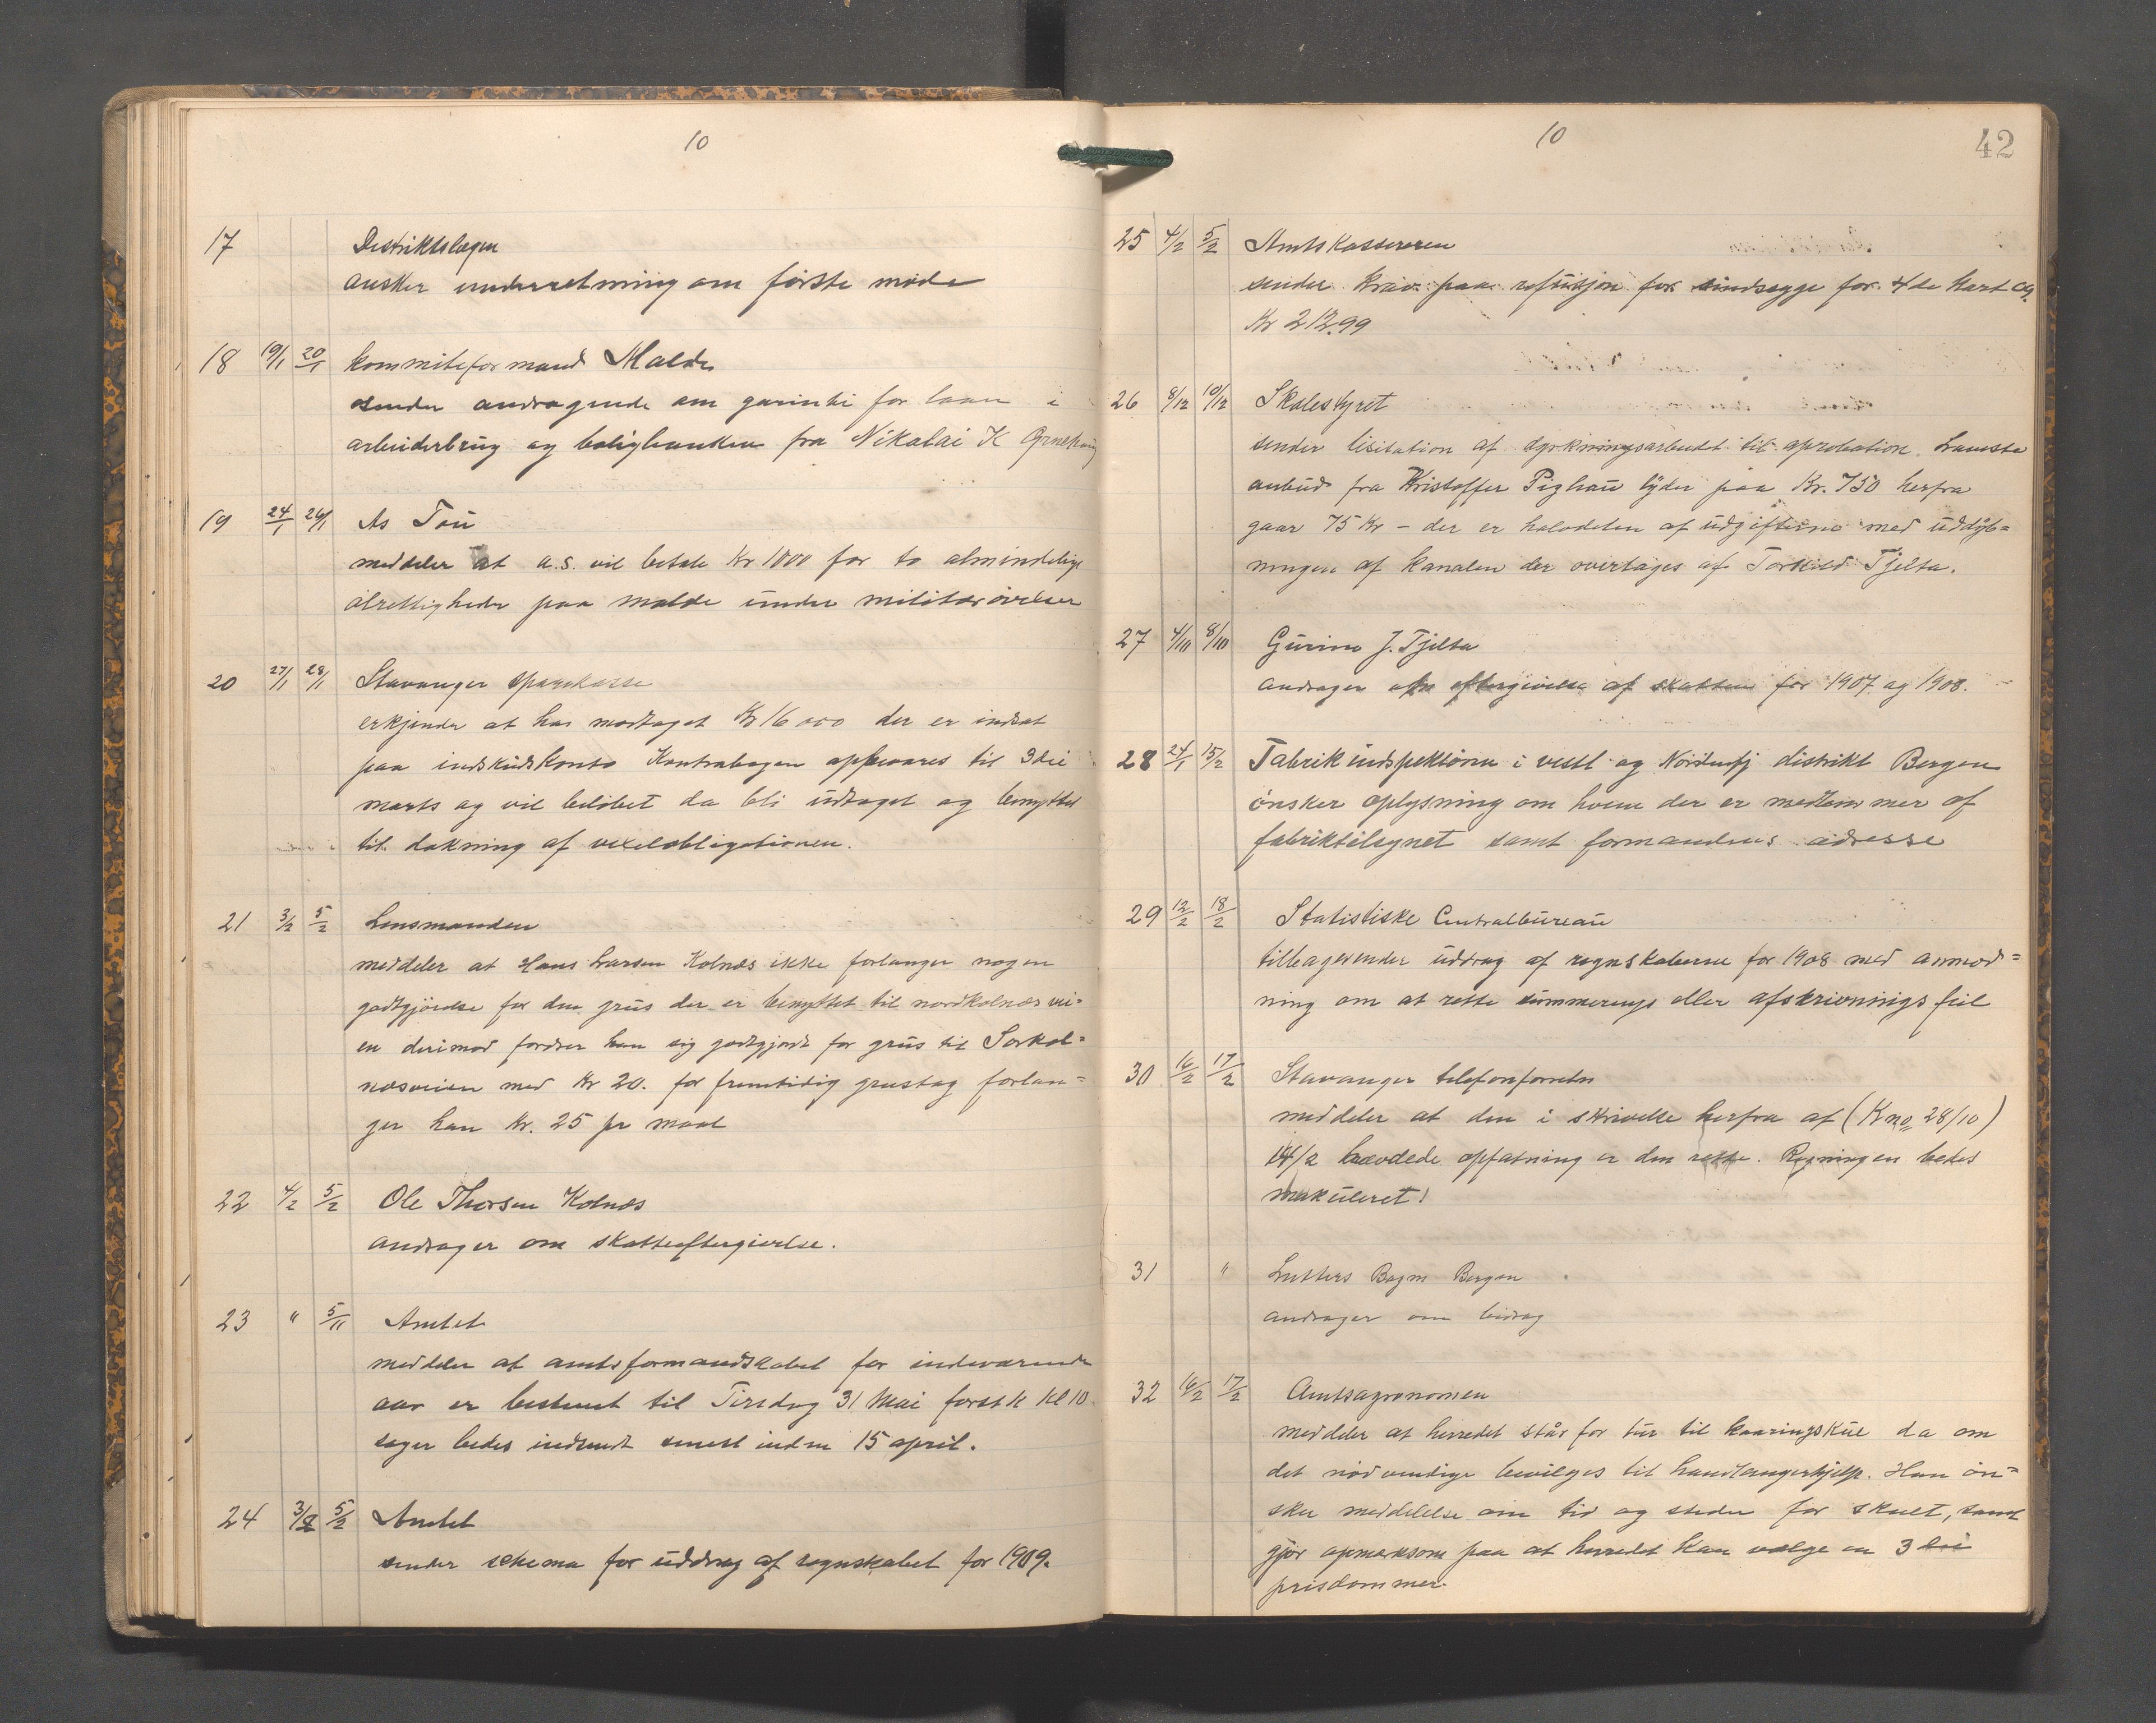 10
17 Distriktslægen
ønsker underretning om første møde
18 19/1 20/1 kommiteformand Malde
sender andragende om garinti for laan i
arbeiderbrug og boligbanken fra Nikolai K
19 24/1 26/1 As Tou
meddeler at a.s. vil betale Kr 1000 for to almindelige
ølrettigheder paa malde under militærøvelser
20 27/1 28/1 Stavanger sparekasse
erkjender at ha modtaget Kr 16000 der er indsat
paa indskudskonto Kontrabogen opbevares til 3die
marts og vil beløbet da bli udtaget og benyttet
til dækning af vexelobligationen.
21 3/2 5/2 Lensmanden
meddeler at Hans Larsen Kolnæs ikke forlanger nogen
godtgjørelse for den grus der er benyttet til nordkolnæs vei=
en derimod fordrer han sig godtgjort for grus til Sørkol=
næsveien med Kr 20. for fremtidig grustag forlan=
ger han Kr. 25 pr maal
22 4/2 5/2 Ole Thorsen Kolnæs
andrager om skatteeftergivelse.
23 " 5/11 Amtet
meddeler at amtsformandskabet for indeværende
aar er bestemt til Tirsdag 31 Mai førstk Kl 10
sager bedes indsendt senest inden 15 april.
24 3/2 5/2 Amtet
sender schema for uddrag af regnskabet for 1909.
10
42
25 4/2 5/2 Amtskassereren
sender krav paa refusjon for sindssyge for 4de kvart 09
Kr 212.99
26 8/12 10/12 Skolestyret
sender lisitation af dyrkningsarbeidet til aprobation. Laveste
anbud fra Kristoffer Pighau lyder paa Kr. 750 herfra
gaar 75 Kr – der er halvdelen af udgifterne med uddyb=
ningen af kanalen der overtages af Torkild Tjelta.
27 4/10 8/10 Gurine J. Tjelta
andrager om eftergivelse af skatten for 1907 og 1908.
28 24/1 15/2 Fabrikindspektøren i vestl og Nordenfj distrikt Bergen
ønsker oplysning om hvem der er medlemmer af
fabriktilsynet samt formandens adresse
29 12/2 18/2 Statistiske Centralbureau
tilbagesender uddrag af regnskaberne for 1908 med anmod=
ning om at rette summerings eller afskrivningsfeil
30 16/2 17/2 Stavanger telefonforretn
meddeler at den i skrivelse herfra af (K no 28/10)
14/2 hævdede opfatning er den rette. Regningen bedes
makuleret!
31 " Luthers Bergen
andrager om bidrag
32 16/2 17/2 Amtsagronomen
meddeler at herredet står for tur til kaaringskue da om
det nødvendige bevilges til handlangerhjelp. Han øn=
sker meddelelse om tid og steder for skuet, samt
gjør opmerksom paa at herredet kan vælge en 3 die
prisdommer.